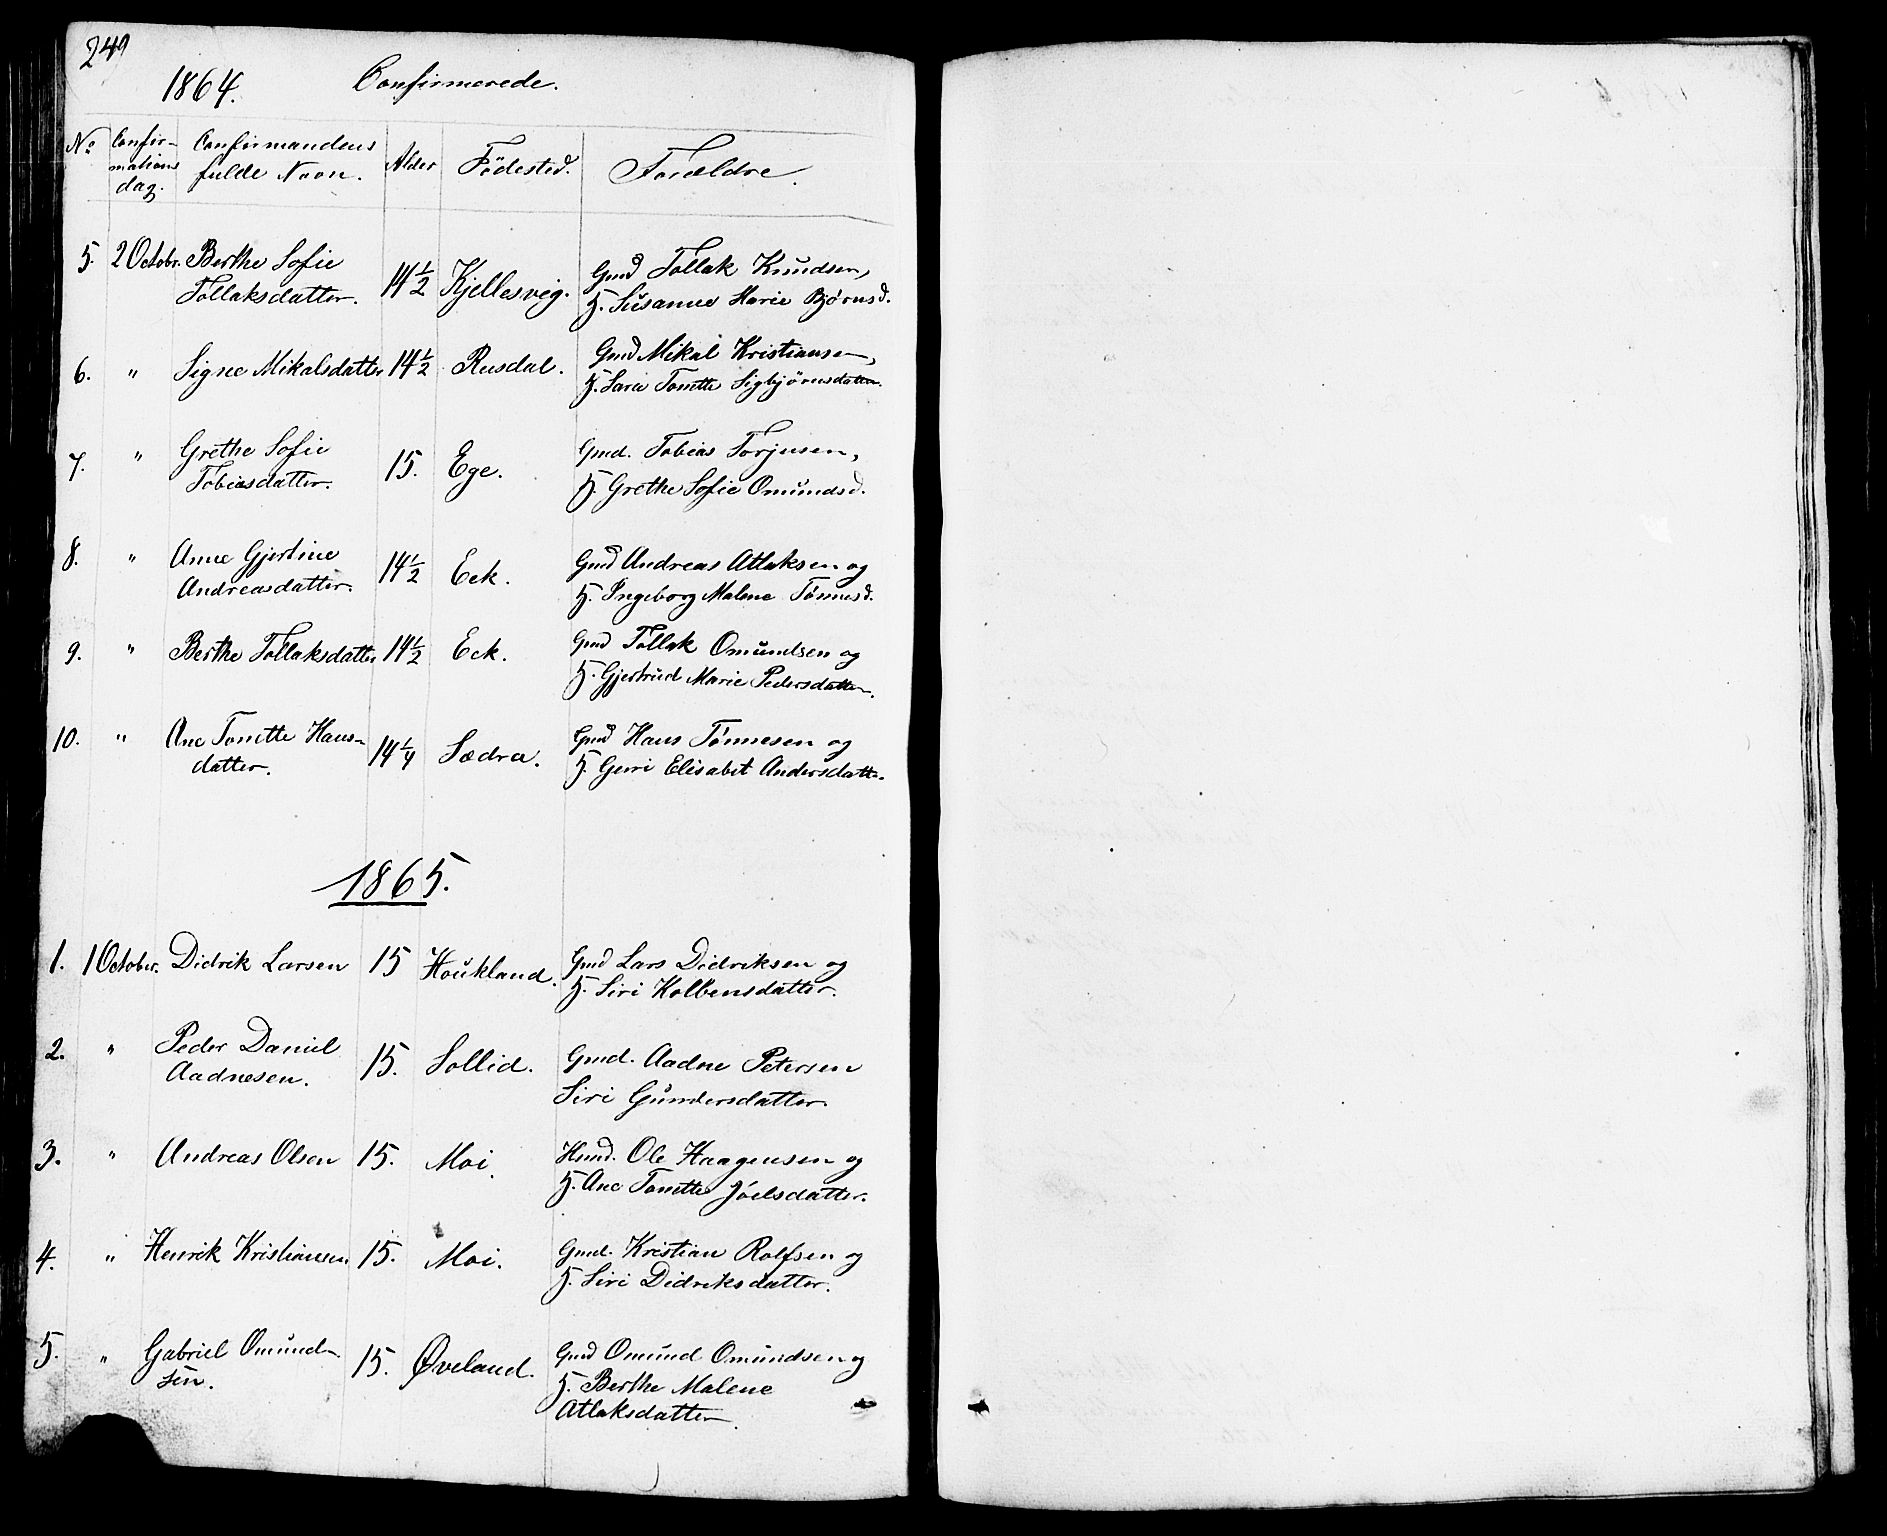 249
1864. Confirmerede.
No Confirmations dag. Confirmandens fulde Navn. Alder Födested. Forældre.
5. 2 Octobr. Berthe Sofie Tollaksdatter. 14 1/2 Kjellesvig. Gmd Tollak Knudsen, H. Susanne Marie Bjørnsd.
6. " Signe Mikalsdatter 14 1/2 Rusdal. Gmd Mikal Kristiansen, H. Sara Tonette Sigbjørnsdatter.
7. " Grethe Sofie Tobiasdatter. 15. Ege. Gmd. Tobias Torjusen, H. Grethe Sofie Omundsd.
8. " Anne Gjertine Andreasdatter. 14 1/2 Eek. Gmd Andreas Atlaksen og H. Ingeborg Malene Tønnesd.
9. " Berthe Tollaksdatter 14 1/2 Eek. Gmd Tollak Omundsen og H. Gjertrud Marie Pedersdatter.
10. " Ane Tonette Hansdatter. 14 1/4 Sædra. Gmd Hans Tønnesen og H. Guri Elisabet Andersdatter.
1865.
1. 1 October. Didrik Larsen 15 Houkland. Gmd Lars Didriksen og H. Siri Kolbensdatter.
2. " Peder Daniel Aadnesen. 15. Sollid. Gmd. Aadne Petersen Siri Gundersdatter.
3. " Andreas Olsen 15. Moi. Hmd. Ole Haagensen og H. Ane Tonette Jóelsdatter.
4. " Henrik Kristiansen 15. Moi. Gmd. Kristian Rolfsen og H. Siri Didriksdatter.
5. " Gabriel Omundsen. 15. Øveland. Gmd Omund Omundsen og H. Berthe Malene Atlaksdatter.